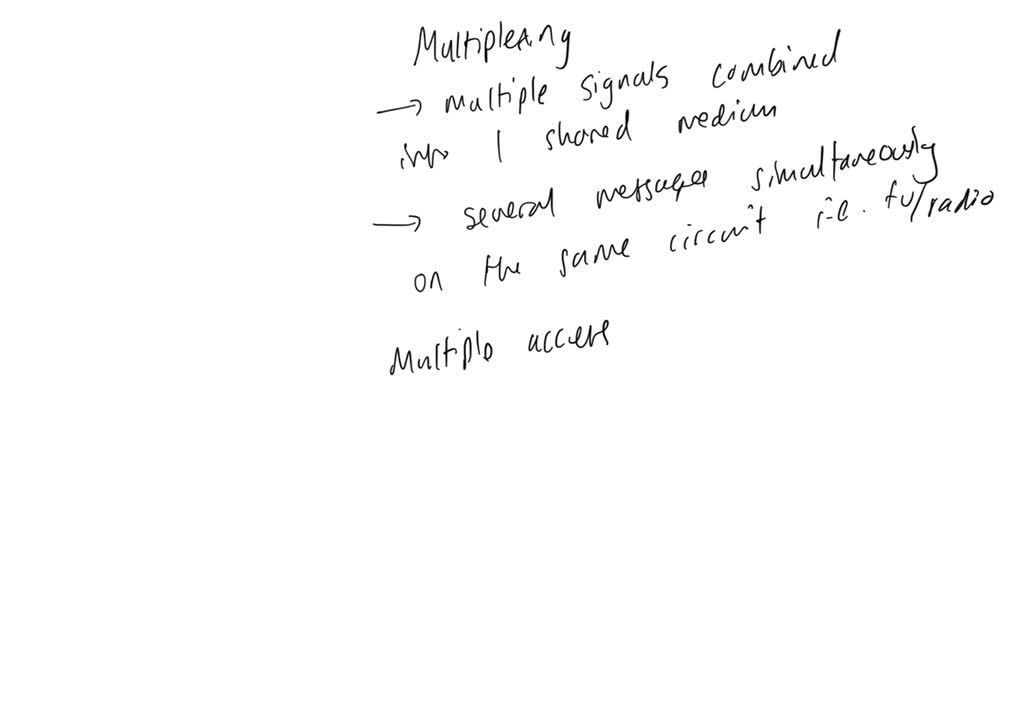 Multiplexing
→ multiple signals combined
into 1 shared medium
→ several messages simultaneously
on the same circuit i.e. tv/radio
Multiple access